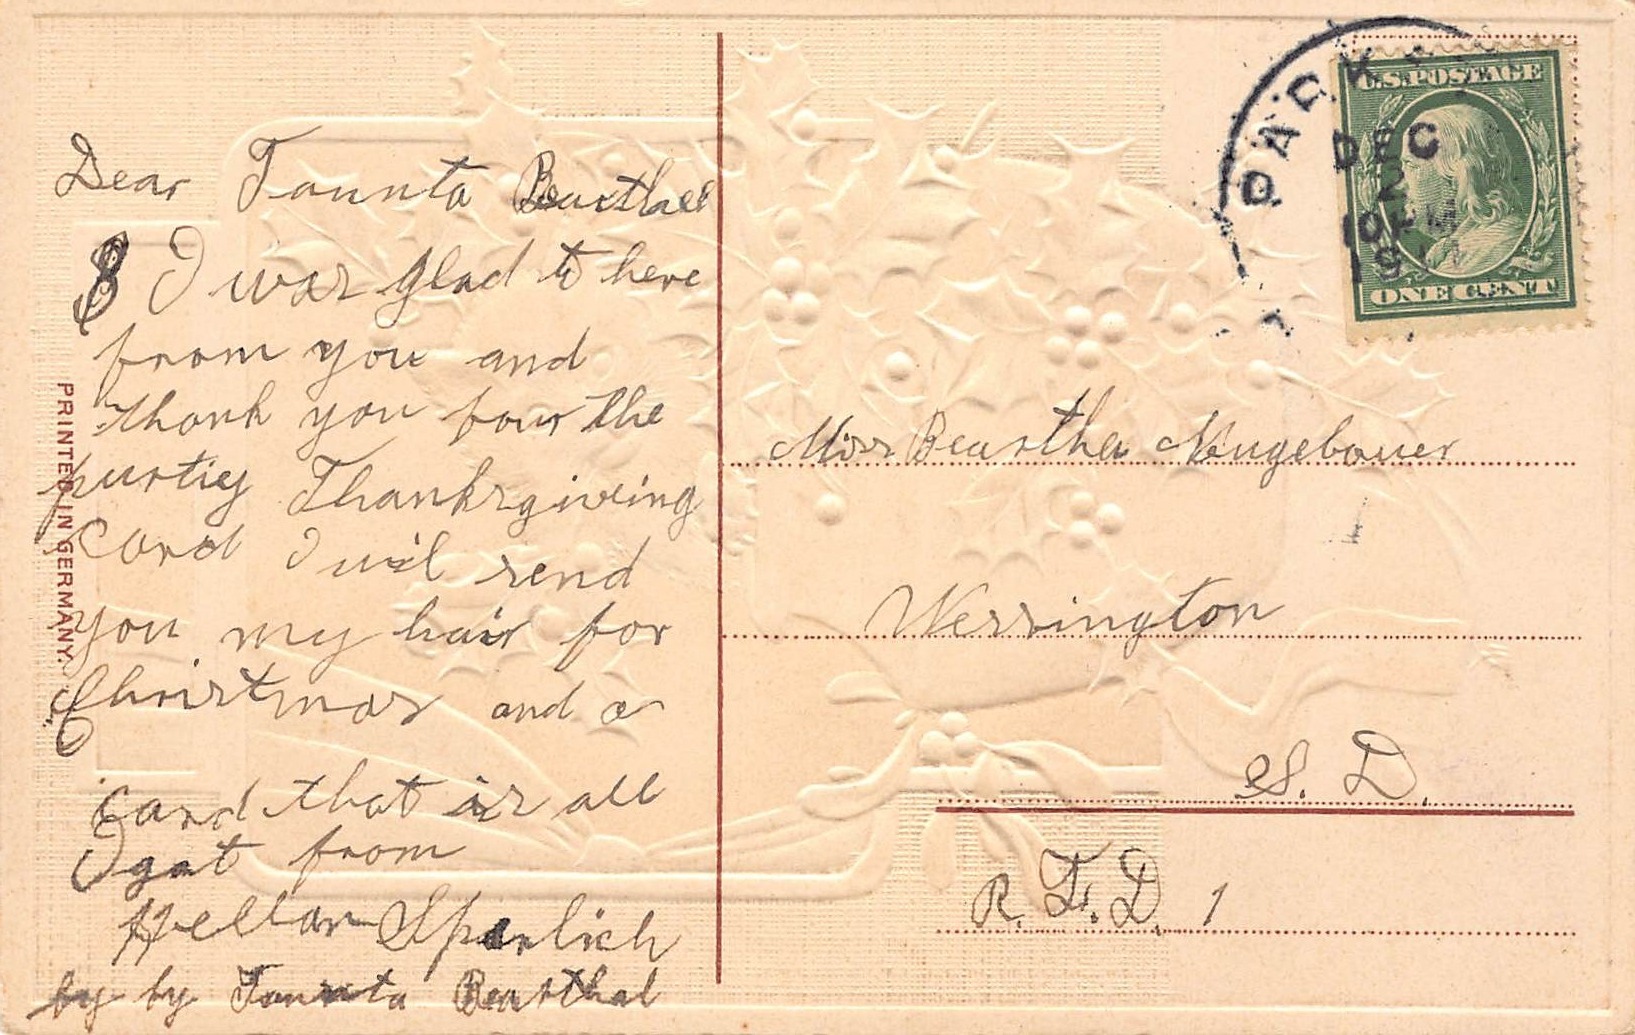 Dear Taunta Bearthal
I was glad to here
from you and
thank you four the
purtiy Thanksgiveing
Card I wil send
you my hair for
Christmas and a
card that is all
I gat from
Hellan Sparlich
by by Taunta Bearthal
PRINTED IN GERMANY.
PARK
DEC
2
10 AM
19
U.S. POSTAGE
ONE CENT
Miss Beartha Neugebauer
Wessington
S. D.
R. F. D. 1